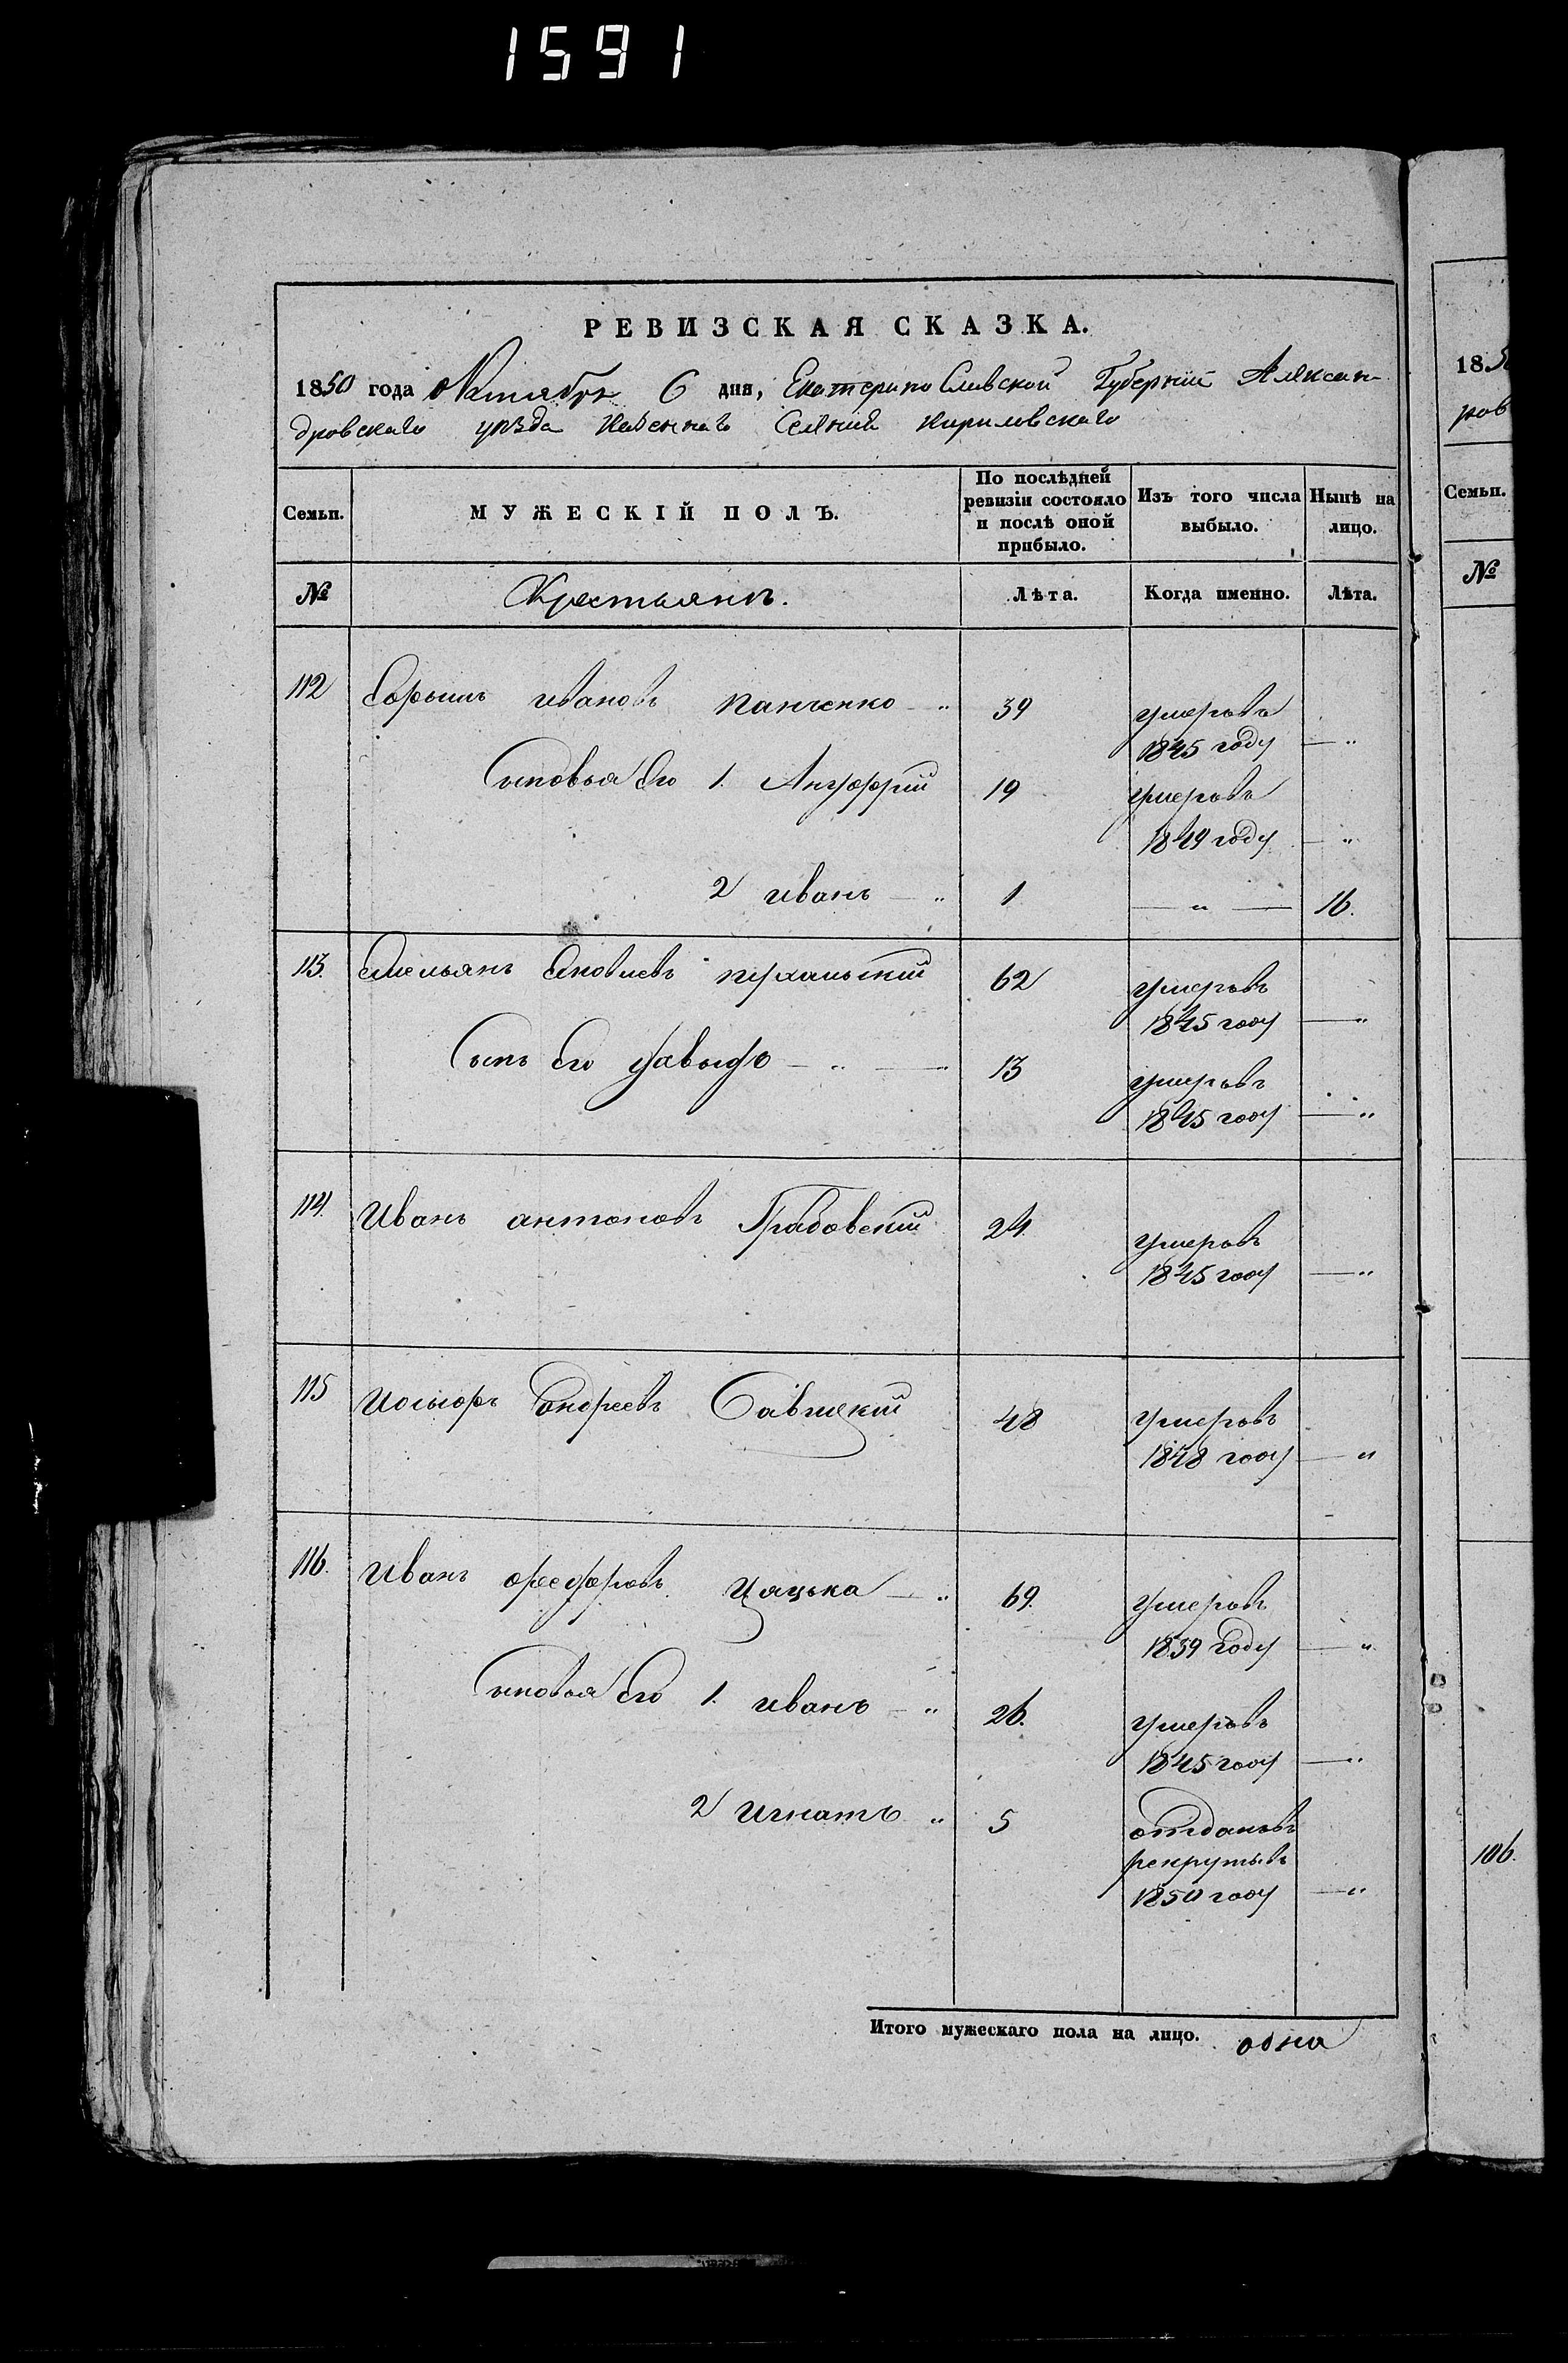 1591
РЕВИЗСКАЯ СКАЗКА.
1850 года октября 6 дня, Екатерино Славской Губернии Алексан-
дровского уезда казеннаго Селения кириловскаго
Семьи. МУЖЕСКІЙ ПОЛЪ. По послѣдней ревизіи состояло и послѣ оной прибыло. Изъ того числа выбыло. Нынѣ на лицо.
№ Крестьянъ. Лѣта. Когда именно. Лѣта.
112 ивановъ панченко — " 39 умеръ въ
1845 году — "
Сыновья Его 1. Ануфрий 19 умеръ въ
1849 году — "
2 иванъ — " 1 — " — 16.
113. Емельянъ Яковлевъ 62 умеръ въ
1845 году — "
Сынъ Его давыдъ — " — 13 умеръ въ
1845 году — "
114. Иванъ антоновъ Грабовский 24. умеръ въ
1845 году — "
115 Иосыфъ андреевъ Савицкий 48 умеръ въ
1848 году — "
116. Иванъ феодоровъ Цацька — " 69. умеръ въ
1839 году — "
Сыновья Его 1. иванъ — " 26. умеръ въ
1845 году — "
2 Игнатъ " 5 отданъ въ
рекруты въ
1850 году — "
Итого мужескаго пола на лицо. одна
185
ров
Семьи.
№
106.